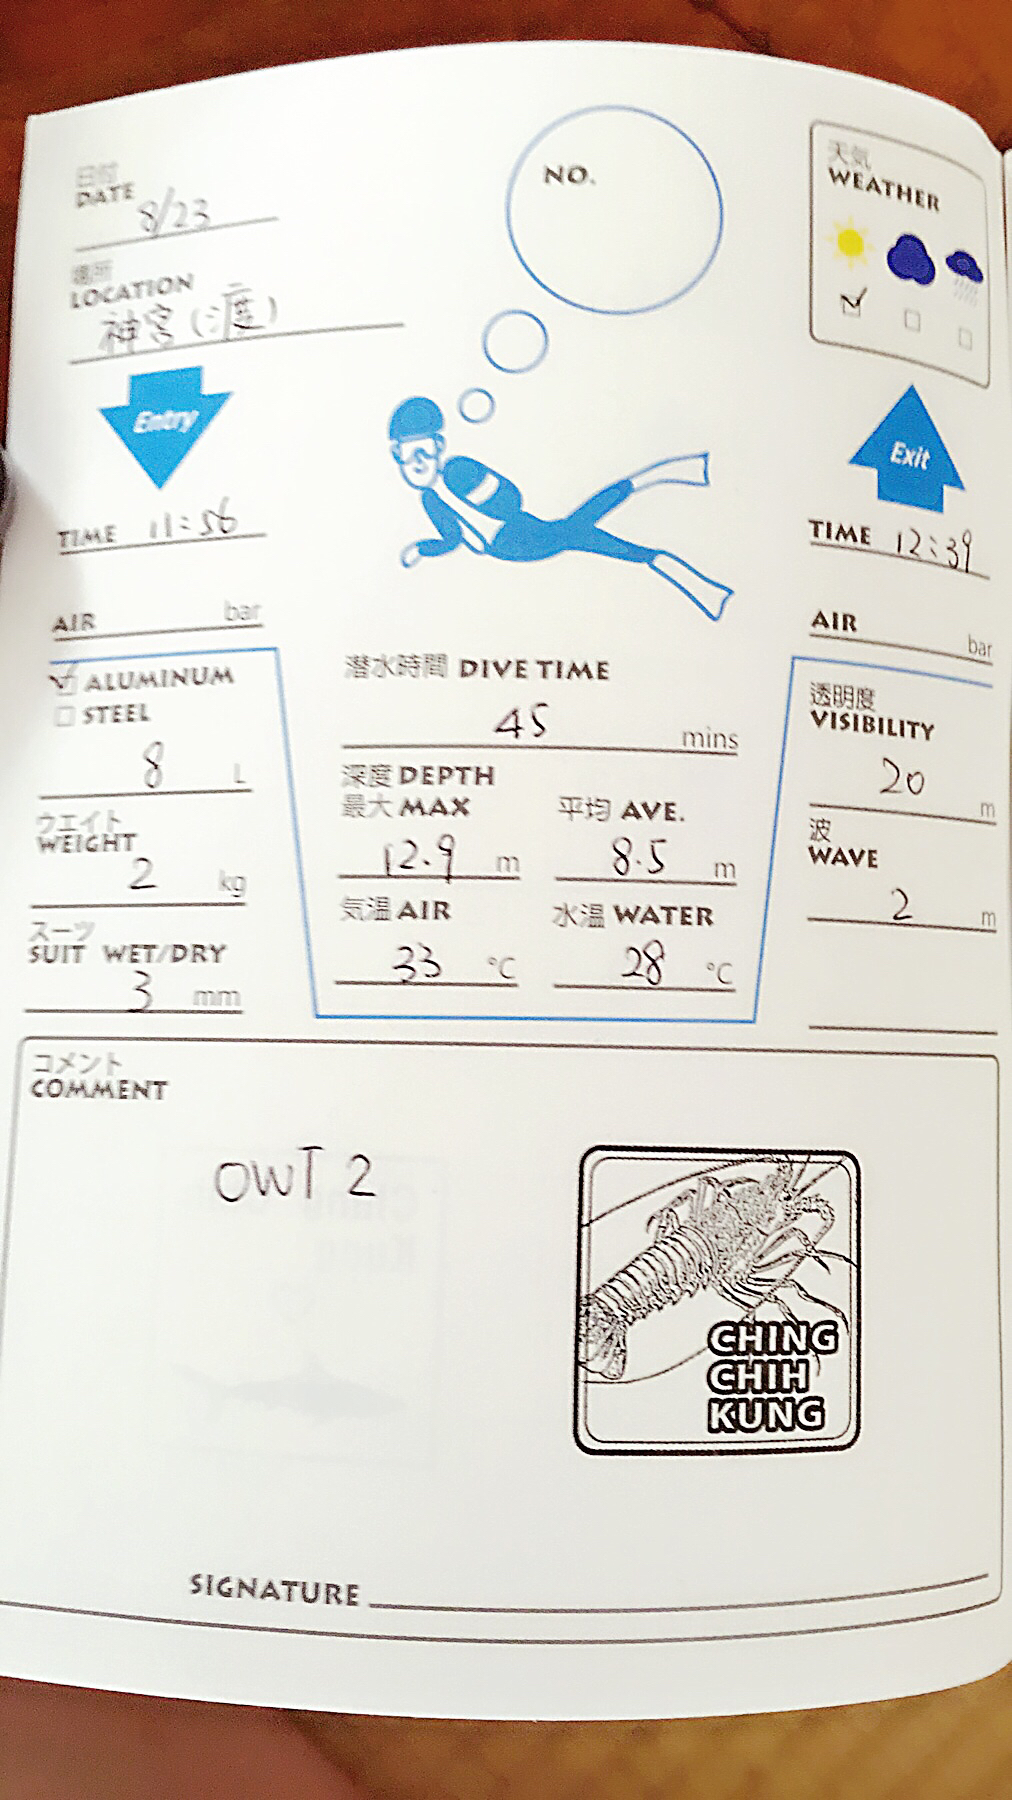 日付
DATE
8/23
場所
LOCATION
神宮(渡)
NO.
天気
WEATHER
Entry
TIME 11:56
AIR bar
Exit
TIME 12:39
AIR bar
ALUMINUM
STEEL
8 L
ウエイト
WEIGHT
2 kg
スーツ
SUIT WET/DRY
3 mm
潜水時間 DIVE TIME
45 mins
深度 DEPTH
最大 MAX
12.9 m
平均 AVE.
8.5 m
気温 AIR
33 °C
水温 WATER
28 °C
透明度
VISIBILITY
20 m
波
WAVE
2 m
コメント
COMMENT
OWT 2
CHING
CHIH
KUNG
SIGNATURE